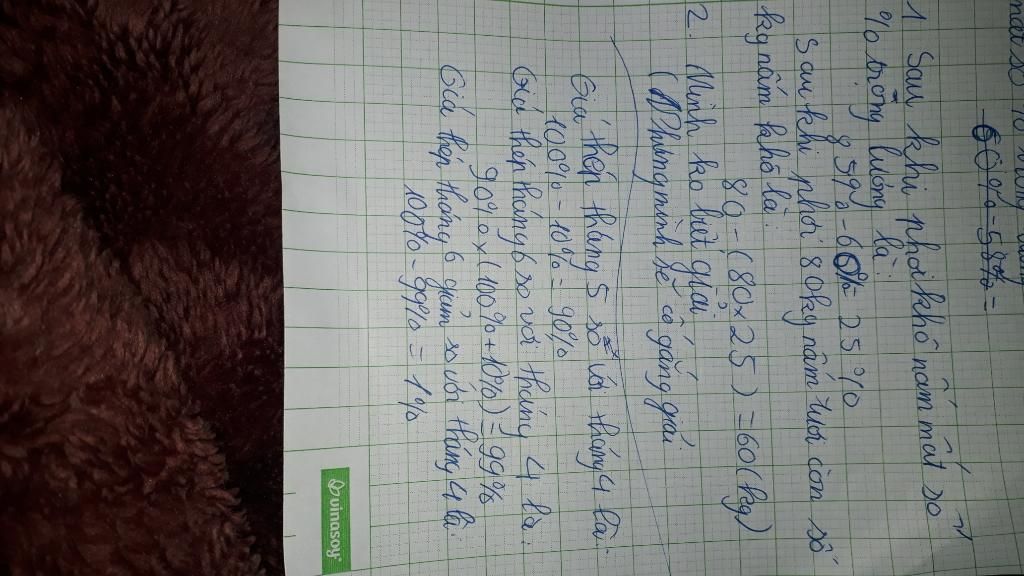 1 Sau khi phơi khô nấm mất số
% trọng lượng là:
85% - 60% = 25%
Sau khi phơi 80kg nấm tươi còn số
kg nấm khô là:
80 - (80 x 25) = 60 (kg)
2. Mình ko biết giải
(Nhưng mình sẽ cố gắng giải
Giá thép tháng 5 so với tháng 4 là:
100% - 10% = 90%
Giá thép tháng 6 so với tháng 4 là:
90% x (100% + 10%) = 99%
Giá thép tháng 6 giảm so với tháng 4 là:
100% - 99% = 1%
Vinasoy